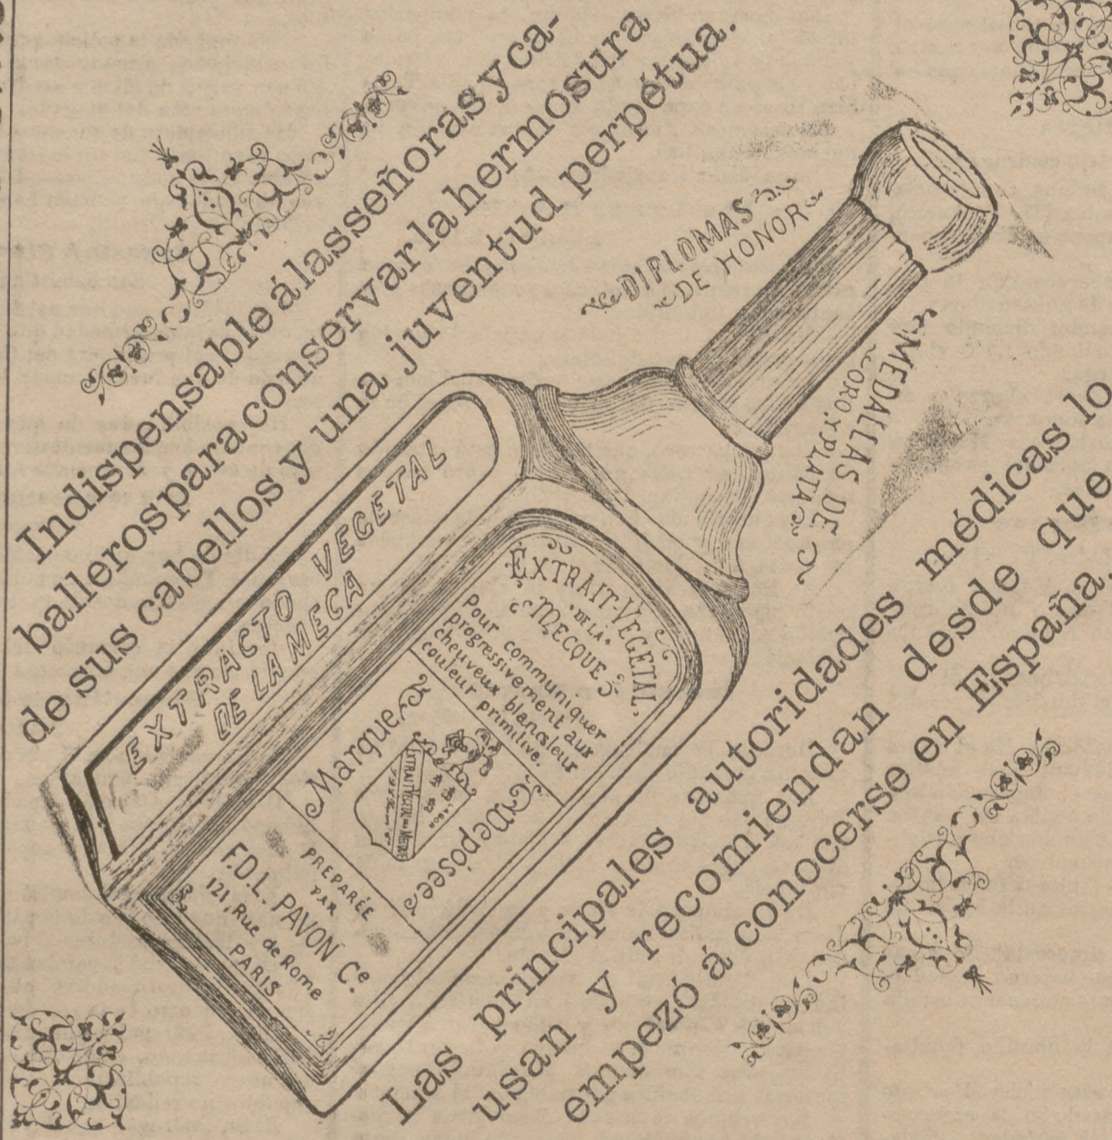 Indispensable á las señoras y ca-
balleros para conservar la hermosura
de sus cabellos y una juventud perpétua.
DIPLOMAS
DE HONOR
MEDALLAS DE
ORO Y PLATA
EXTRACTO VEGETAL
DE LA MECA
EXTRAIT-VEGETAL,
DE LA
MECQUE
Pour communiquer
progressivement aux
cheuveux blancsleur
couleur primitive.
Marque
Deposee
PREPARÉE
PAR
F.D L. PAVON Ce
121, Rue de Rome
PARIS
Las principales autoridades médicas lo
usan y recomiendan desde que
empezó á conocerse en España.